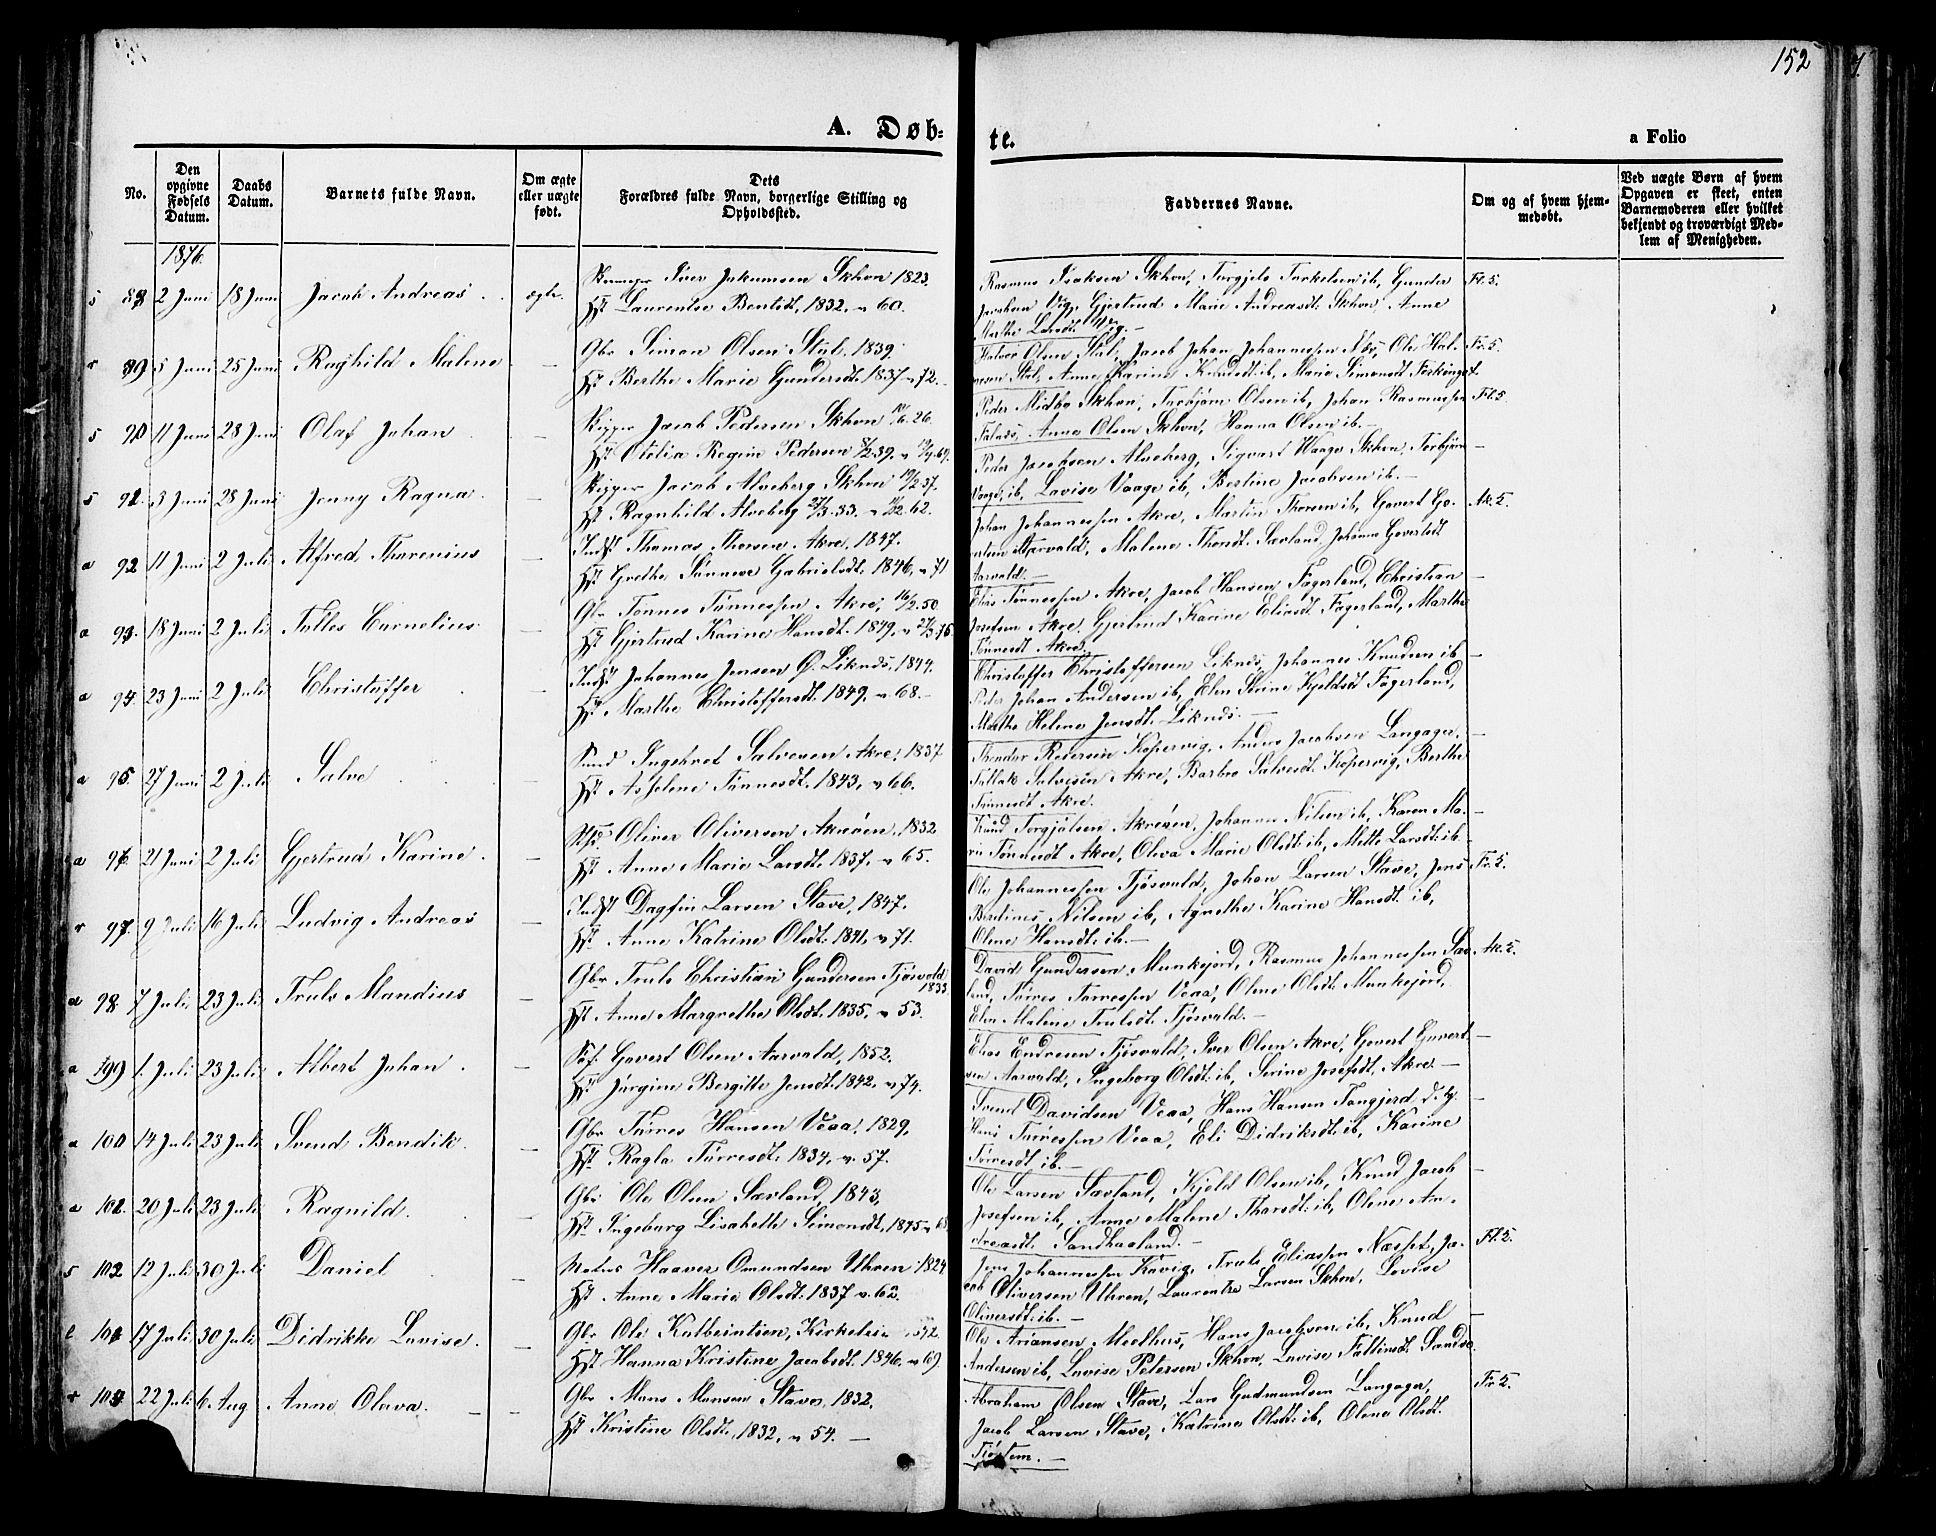 152
A. Døb-
te.
a Folio
No.
Den opgivne Fødsels Datum.
Daabs Datum.
Barnets fulde Navn.
Om ægte eller uægte født.
Dets Forældres fulde Navn, borgerlige Stilling og Opholdssted.
Faddernes Navne.
Om og af hvem hjemmedøbt.
Ved uægte Børn af hvem Opgaven er skeet, enten Barnemoderen eller hvilket bekjendt og troværdigt Medlem af Menigheden.
1876.
s 88 2 Juni 18 Juni Jacob Andreas ægte. Iver Jakumsen Skhvn 1823.
Hst Laurentse Bentsdt, 1832, v 60.
Rasmus Isaksen Skhvn, Torgjels Torkelsen ib, Gunder Fl. 5.
Vig, Gjertrud Marie Andreasdt. Skhvn, Anne
Marthe Larsdt. Vig. –
r 89 5 Juni 25 Juni Raghild Malene – Gbr Simon Olsen Stol, 1839.
Hst Berthe Marie Gundersdt. 1837 v 72.
Halvor Olsen Stol, Jacob Johan Johannessen Næs, Ole Hal- Fr. 5.
vorsen Stol, Anne Karine Knudsdt. ib, Marie Simonsdt Ferkingst.
s 90 11 Juni 28 Juni Olaf Johan – Skipper Jacob Pedersen Skhvn 26.
Hst Otelia Regine Pedersen 39.
Peder Midbø Skhvn, Torbjørn Olsen ib, Johan Rasmussen Fl. 5.
Falnes, Anne Olsen Skhvn, Hanna Olsen ib. –
s 91. 3 Juni 28 Juni Jenny Ragna – Skipper Jacob Alveberg Skhvn 37.
Hst Ragnhild Alveberg 33. 62.
Peder Jacobsen Alveberg, Sigvart Waage Skhvn, Torbjørn –
Vaage, ib, Lovise Vaage ib, Bertine Jacobsen ib. –
a 92 11 Juni 2 Juli Alfred Thorenius – Indst Thomas Thorsen Akre, 1847.
Hst Grethe Sønneve Gabrielsdt. 1846, v 71
Johan Johannessen Akre, Martin Thorsen ib, Govert Go- Ak. 5.
vertsen Aarvald, Malene Thorsdt. Sævland, Johanna Govertsdt
Aarvald. –
a 93. 18 Juni 2 Juli Tolles Cornelius – Gbr Tønnes Tønnessen Akre, 16/2.50.
Hst Gjertrud Karine Hansdt. 1849,
Elias Tønnessen Akre, Jacob Hansen Fagerland, Christian –
Josefsen Akre, Gjertrud Karine Eliasdt Fagerland, Marthe
Tønnesdt Akre.
a 94. 23 Juni 2 Juli Christoffer – Indst Johannes Jensen Ø. Liknes, 1844.
Hst Marthe Christoffersdt. 1849, v 68. –
Christoffer Christoffersen Liknes, Johannes Knudsen ib –
Peder Johan Andersen ib, Elen Serine Kjeldsdt Fagerland,
Marthe Helene Jensdt. Liknes. –
a 95. 27 Juni 2 Juli Salve – Smed Ingebret Salvesen Akre, 1837.
Hst Asselene Tønnesdt. 1843, v 66.
Kopervig, Anders Jacobsen Langager, –
Tollak Salvesen Akre, Barbro Salvesdt. Kopervig, Berthe
Tønnesdt Akre.
a 96 21 Juni 2 Juli Gjertrud Karine – Oliver Oliversen Akrøen, 1832.
Hst Anne Marie Larsdt. 1837, v 65.
Knud Torgjølsen Akrøen, Johannes Nilsen ib, Karen Ma- –
rie Tønnesdt Akre, Oleva Marie Olsdt. ib, Mette Larsdt. ib.
r 97. 9 Juli 16 Juli Ludvig Andreas – Indst Dagfin Larsen Stave, 1847.
Hst Anne Katrine Olsdt. 1841, v 71.
Ole Johannessen Tjøsvold, Johan Larsen Stave, Jens Fr. 5.
Berdines Nilsen ib, Agnethe Karine Hansdt. ib,
Olene Hansdt. ib. –
a 98. 7 Juli 23 Juli Truls Mandius – Gbr Truls Christian Gundersen Tjøsvold 1833
Hst Anne Margrethe Olsdt. 1835, v 53.
David Gundersen Munkejord, Rasmus Johannessen Sæv- Ak. 5.
land, Tørres Tørressen Veaa, Olene Olsdt. Munkejord,
Elen Malene Trulsdt. Tjøsvold. –
a 99 1. Juli 23 Juli Albert Johan – Søf Govert Olsen Aarvald, 1852.
Hst Jørgine Bergitte Jensdt. 1842, v 74.
Elias Endresen Tjøsvold, Iver Olsen Akre, Govert Govert- –
sen Aarvald, Ingeborg Olsdt. ib, Serine Josefsdt. Akre. –
a 100 14 Juli 23 Juli Svend Bendik – Gbr Tørres Hansen Veaa, 1829,
Hst Ragla Tørresdt. 1834, v 57.
Svend Davidsen Veaa, Hans Hansen Tangjerd d. y. –
Hans Tørressen Veaa, Eli Didriksdt. ib, Karine
Tørresdt ib. –
a 101. 20 Juli 23 Juli Ragnild – Gbr Ole Olsen Sævland, 1843,
Hst Ingeborg Lisabeth Simonsdt, 1845
Ole Larsen Sævland, Kjeld Olsen ib, Knud Jacob –
Josefsen ib, Anne Malene Thorsdt. ib, Olene An-
dreasdt. Sandhaaland. –
s 102 12 Juli 30 Juli Daniel – Haaver Omundsen Uthvn 1824
Hst Anne Marie Olsdt. 1837 v. 62.
Jens Johannessen Køvig, Truls Eliassen Næsset, Ja- Fl. 5.
cob Oliversen Uthvn, Laurentze Larsen Skhvn, Lovise
Oliversdt. ib. –
103 17 Juli 30 Juli Didrikke Lovise – Gbr Ole Kolbeintsen, Kirkeleie
Hst Hanna Kristine Jacobsdt. 1846, v 69.
Ole Ariansen Medhus, Hans Jacobsen ib, Knud –
Andersen ib, Lovise Petersen Skhvn, Lovise Sandve.
r 104 22 Juli 6. Aug Anne Oleva. – Gbr Mons Monsen Stave, 1832,
Hst Kristine Olsdt. 1832, v 54. –
Abraham Olsen Stave, Lars Gudmundsen Langager, Fr. 5.
Jacob Larsen Stave, Katrine Olsdt. ib, Olene Olsdt.
Tjøstem. –